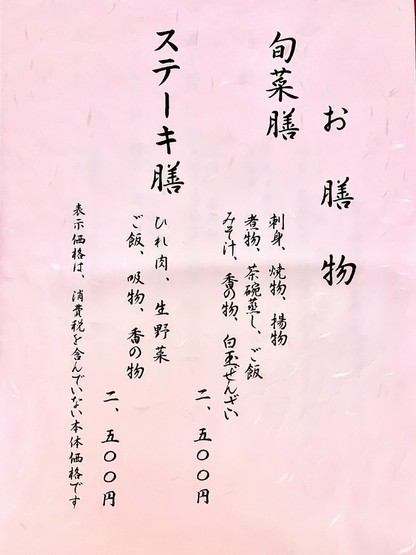 お膳物
旬菜膳
刺身、焼物、揚物
煮物、茶碗蒸し、ご飯
みそ汁、香の物、白玉ぜんざい
二、五〇〇円
ステーキ膳
ひれ肉、生野菜
ご飯、吸物、香の物
二、五〇〇円
表示価格は、消費税を含んでいない本体価格です